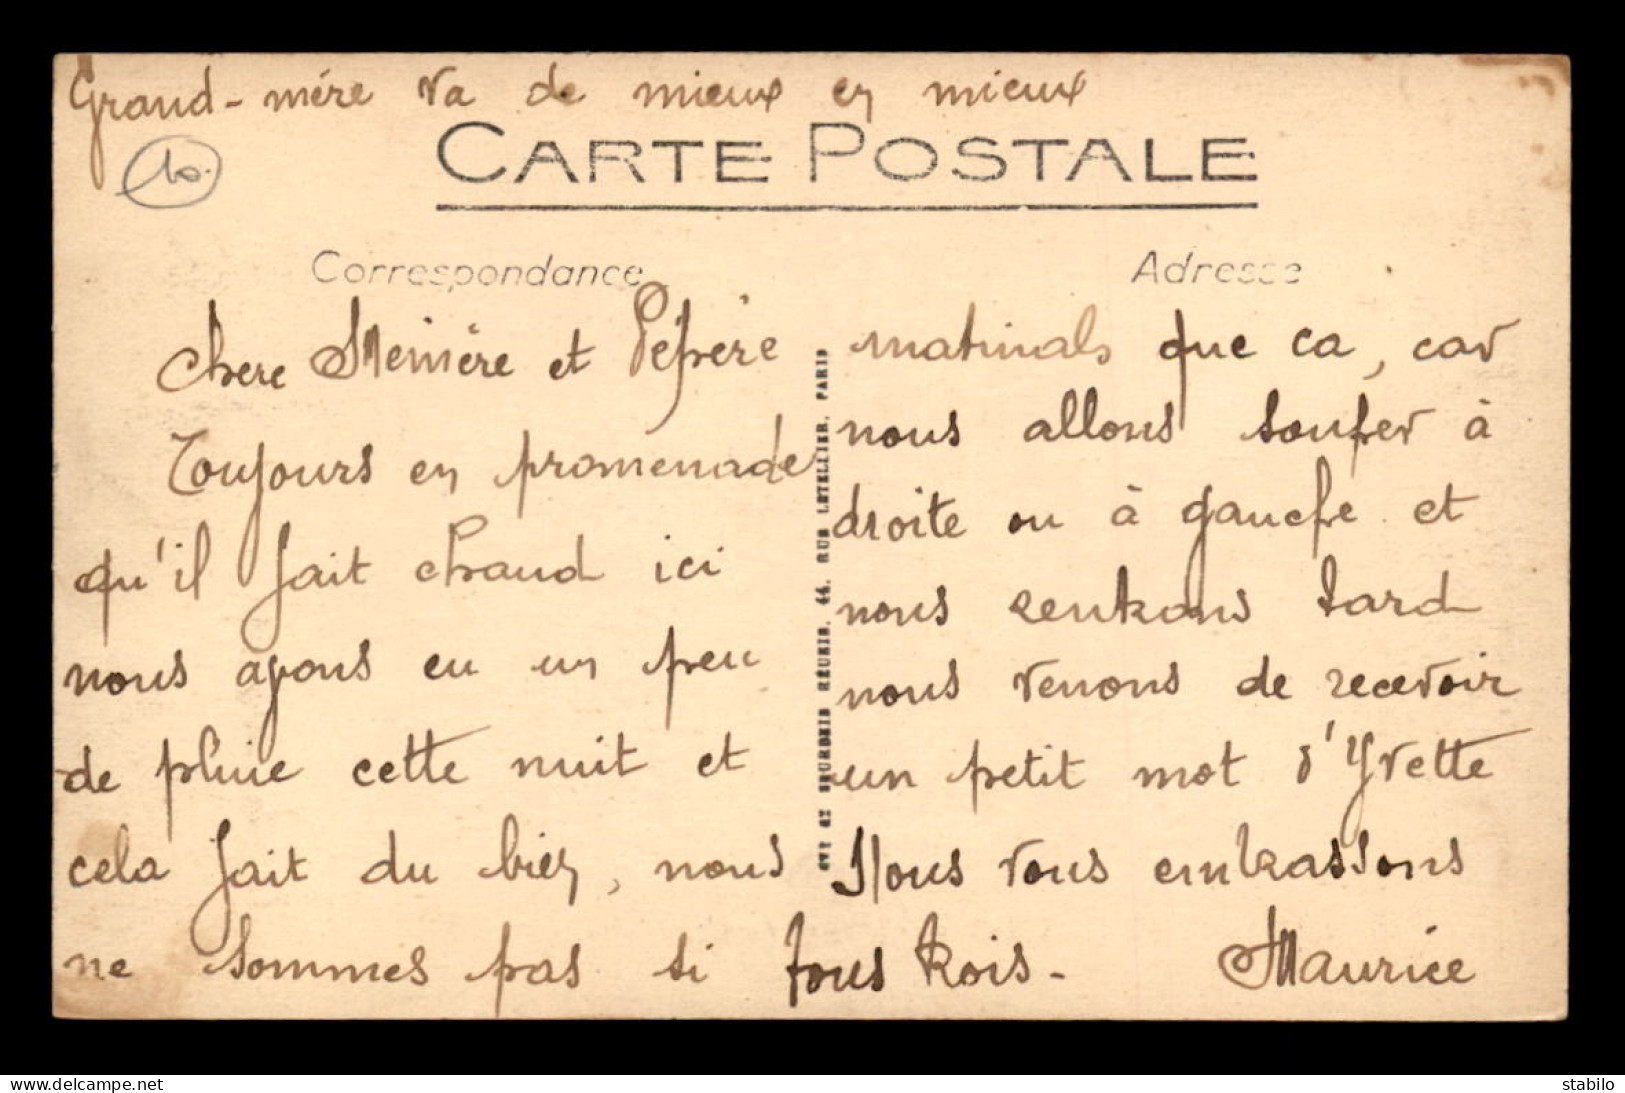 Grand-mére va de mieux en mieux
10.
CARTE POSTALE
Correspondance
Adresse
Chere Mémère et Pépère
Toujours en promenade
qu'il fait chaud ici
nous avons eu un peu
de pluie cette nuit et
cela fait du bien, nous
ne sommes pas si
matinals que ca, car
nous allons souper à
droite ou à gauche et
nous rentrons tard
nous venons de recevoir
un petit mot d'Yvette
Nous vous embrassons
tous trois - Maurice
RÉUNIS, 44, RUE LETELLIER, PARIS
www.delcampe.net
stabilo